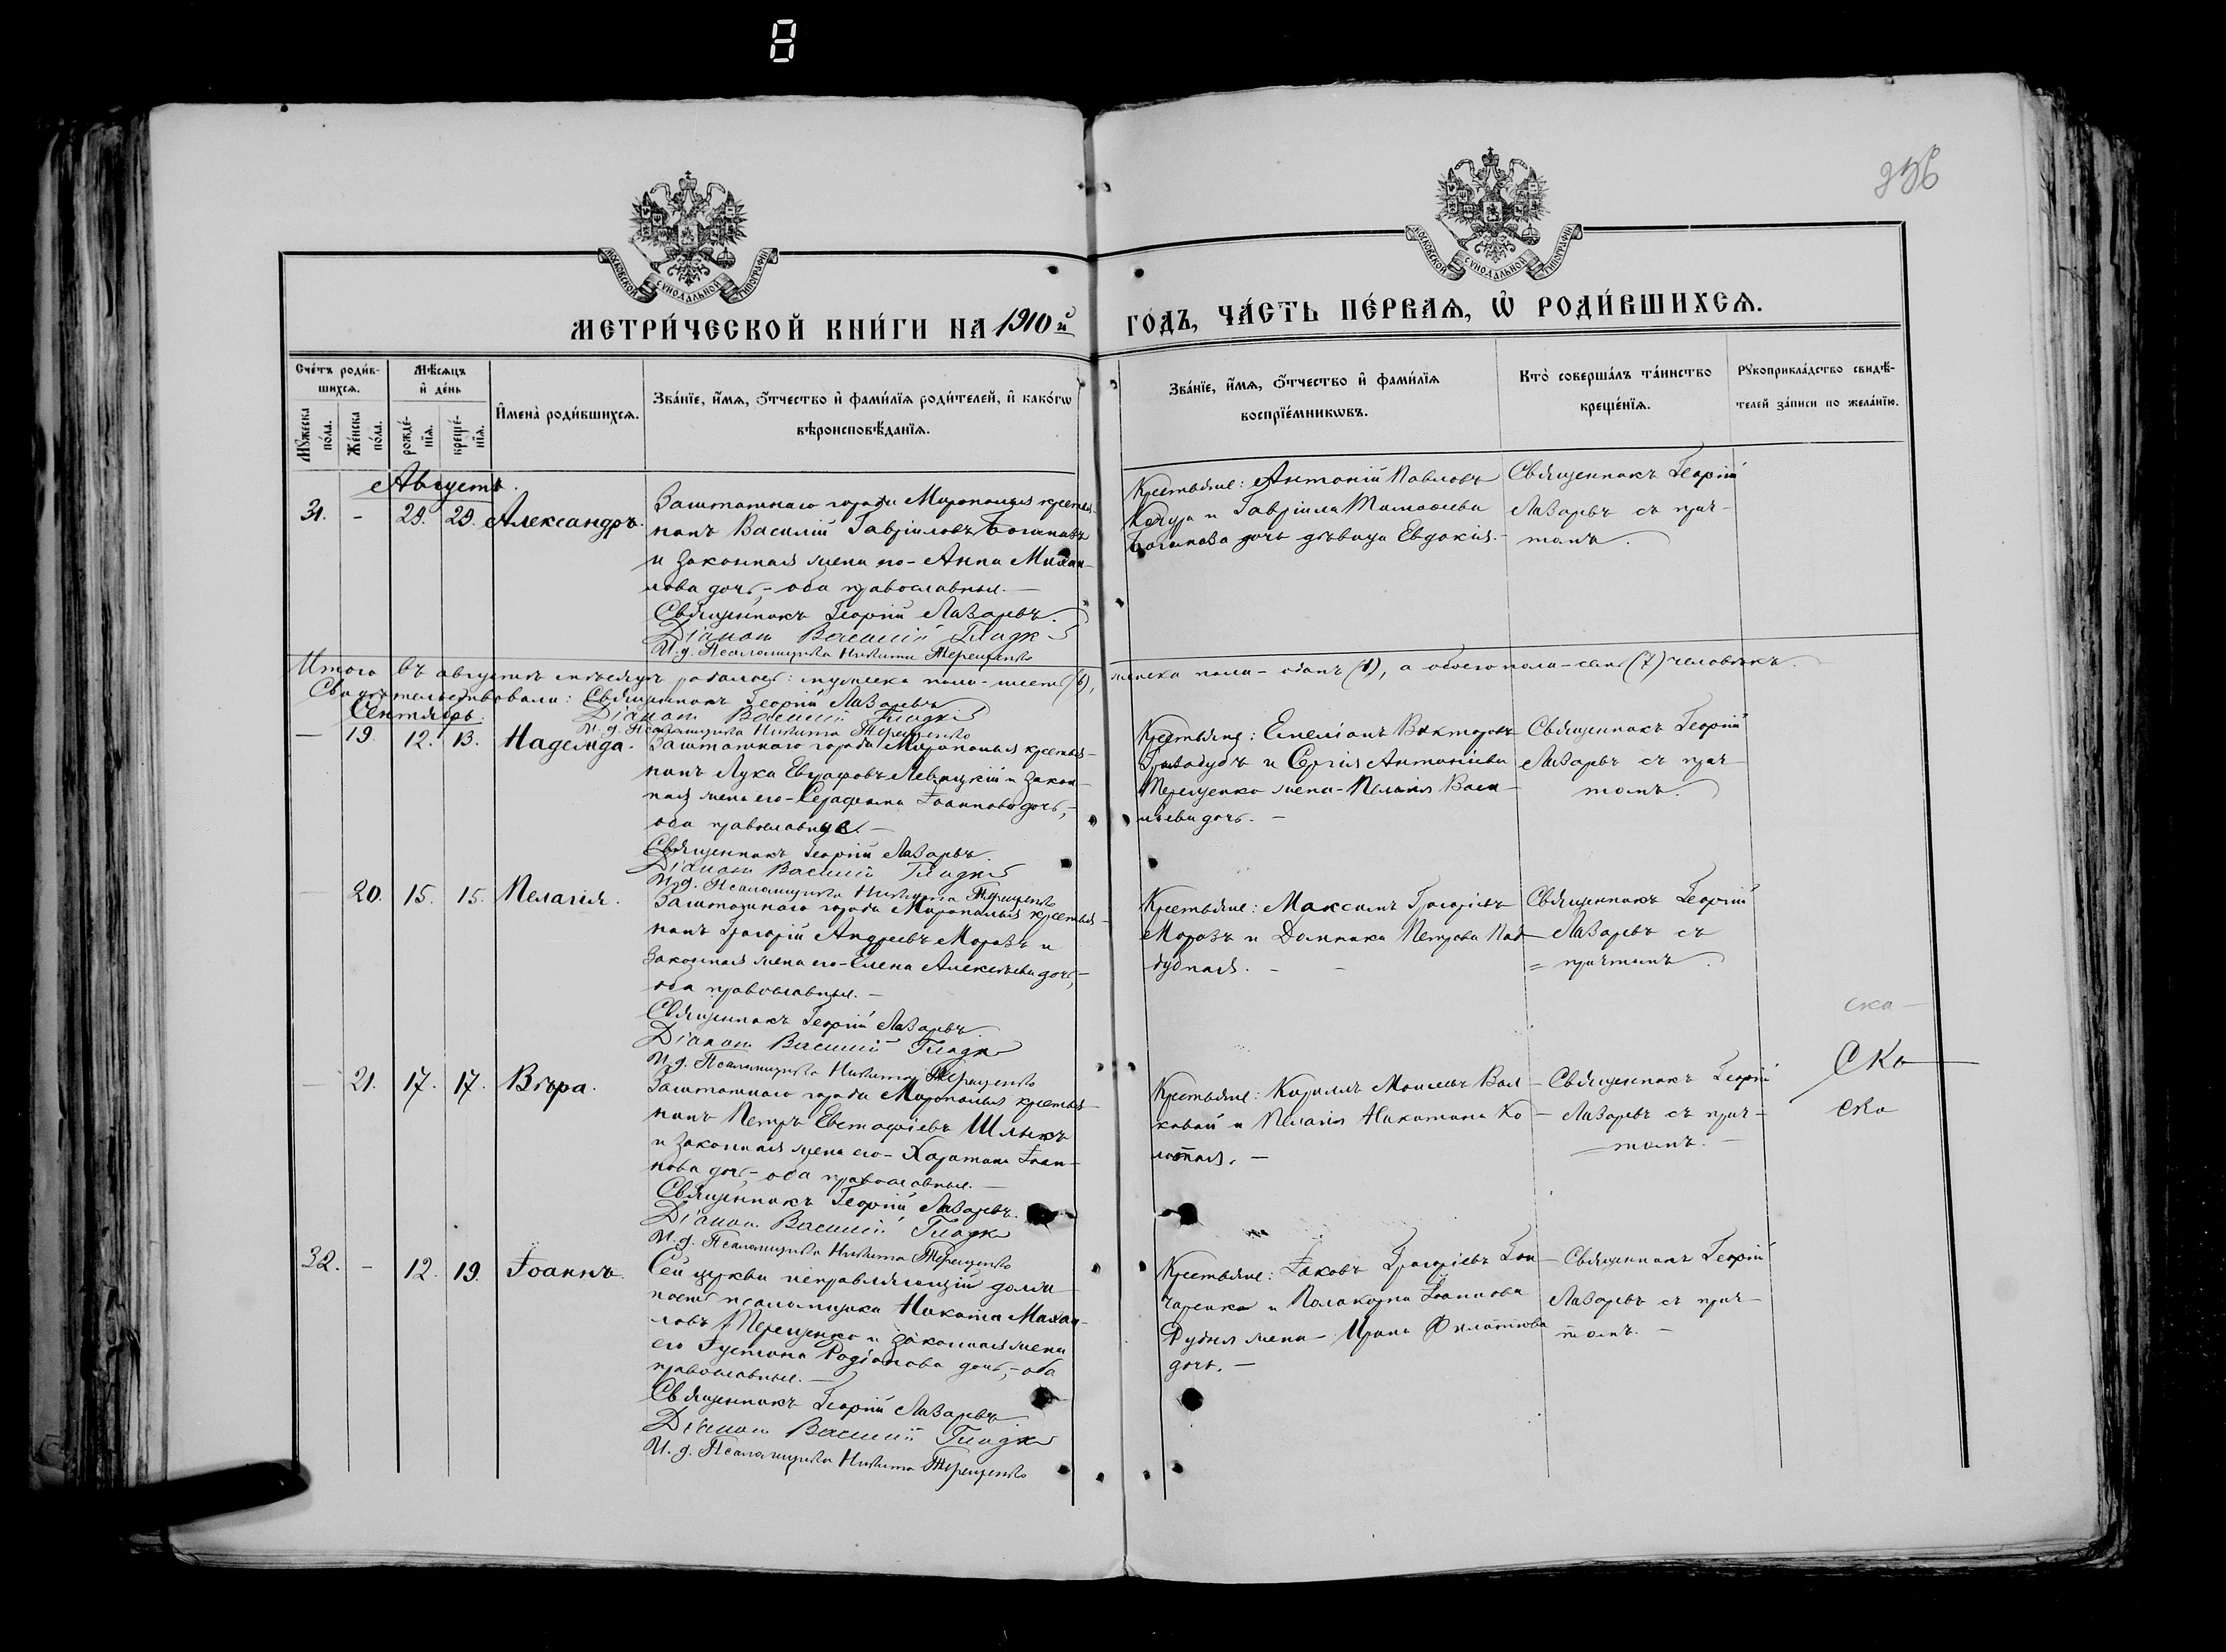 8
256
МОСКОВСКОЙ СѴНОДАЛЬНОЙ ТИПОГРАФІИ
МОСКОВСКОЙ СѴНОДАЛЬНОЙ ТИПОГРАФІИ
МЕТРИ́ЧЕСКОЙ КНИ́ГИ НА 1910й ГО́ДЪ, ЧА́СТЬ ПЕ́РВАѦ, Ѡ҆ РОДИ́ВШИХСѦ.
Сче́тъ роди́в-
шихсѧ.
Мѣ́сѧцъ
и҆ де́нь
Мꙋ́жеска по́ла.
Же́нска по́ла.
рожде́-нїѧ.
креще́-нїѧ.
И҆мена̀ роди́вшихсѧ.
Зва́нїе, и҆́мѧ, ѻ҆́тчество и҆ фами́лїѧ роди́телей, и҆ како́гѡ
вѣроисповѣ́данїѧ.
Зва́нїе, и҆́мѧ, ѻ҆́тчество и҆ фами́лїѧ
воспрїе́мникѡвъ.
Кто̀ соверша́лъ та́инство
креще́нїѧ.
Рꙋкоприкла́дство свидѣ́-
телей за́писи по жела́нїю.
Августъ.
31. - 29. 29. Александръ.
Заштатнаго города Мирополья крестья-
нинъ Василій Гавріиловъ Богиновъ
и законная жена его - Анна Михаи-
лова дочь, - оба православные. —
Священникъ Георгій Лазаревъ.
Діакон Василий Гладкій
И. д. Псаломщика Никита Терещенко
Крестьяне: Антоній Павловъ
Кочура и Гавріила Тимоѳеева
Богинова дочь дѣвица Евдокія. -
Священникъ Георгій
Лазаревъ съ прич-
томъ.
Итого въ августѣ мѣсяцѣ родилось: мужеска пола - шесть (6), женска пола - одинъ (1), а обоего пола - семь (7) человѣкъ.
Свидѣтельствовали: Священникъ Георгій Лазаревъ
Діакон Василий Гладкій
И. д. Псаломщика Никита Терещенко
Сентябрь.
— 19. 12. 13. Надежда.
Заштатнаго города Мирополья крестья-
нинъ Лука Евграфовъ Левицкій и закон-
ная жена его - Серафима Іоаннова дочь, -
оба православные. —
Священникъ Георгій Лазаревъ.
Діакон Василий Гладкій
И. д. Псаломщика Никита Терещенко
Крестьяне: Емеліанъ Викторовъ
и Сергія Антоніева
Терещенко жена - Пелагія Васи-
льева дочь. -
Священникъ Георгій
Лазаревъ съ прич-
томъ.
— 20. 15. 15. Пелагія.
Заштатнаго города Мирополья крестья-
нинъ Григорій Андреевъ Морозъ и
законная жена его - Елена Алексѣева дочь, -
оба православные. —
Священникъ Георгій Лазаревъ.
Діакон Василий Гладкій
И. д. Псаломщика Никита Терещенко
Крестьяне: Максимъ Григорьевъ
Морозъ и Домника Петрова Под-
дубная. - -
Священникъ Георгій
Лазаревъ съ
= причтомъ.
ска —
Ско
ско
— 21. 17. 17. Вѣра.
Заштатнаго города Мирополья крестья-
нинъ Петръ Евстафіевъ Шлыкъ
и законная жена его - Харитина Іоан-
нова дочь, - оба православные. —
Священникъ Георгій Лазаревъ.
Діакон Василий Гладкій
И. д. Псаломщика Никита Терещенко
Крестьяне: Кириллъ Моисеевъ Вол-
ковой и Пелагія Никитина Ко-
Священникъ Георгій
Лазаревъ съ прич-
томъ. —
32. - 12. 19. Іоаннъ.
Сей церкви исправляющій долж-
ность псаломщика Никита Михаи-
ловъ Терещенко и законная жена
его Іустина Родіонова дочь, - оба
православные. —
Священникъ Георгій Лазаревъ
Діакон Василий Гладкій
И. д. Псаломщика Никита Терещенко
Крестьяне: Іаковъ Григоріевъ Гон-
чаренко и Поликарпа Іоаннова
жена - Ирина Филиппова
дочь. —
Священникъ Георгій
Лазаревъ съ прич-
томъ. —